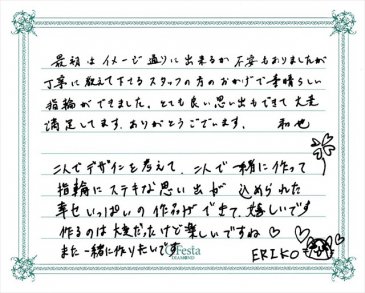 最初はイメージ通りに出来るか不安もありましたが
丁寧に教えて下さるスタッフの方のおかげで素晴らしい
指輪ができました。とても良い思い出もできて大変
満足してます。ありがとうございます。 和也
二人でデザインを考えて、二人で一緒に作って
指輪にステキな思い出が込められた
幸せいっぱいの作品ができて、嬉しいです
作るのは大変だったけど楽しいですね
また一緒に作りたいです
ERIKO
Festa
DIAMOND